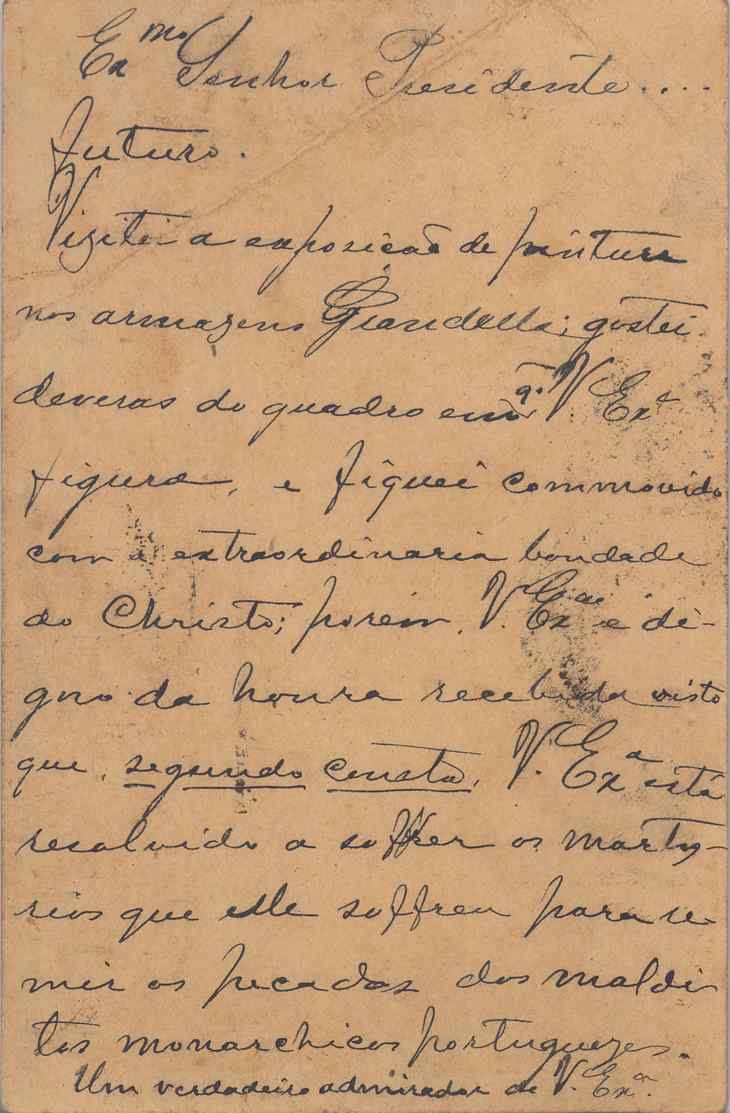 Exmo Senhor Presidente....
futuro.
Vizitei a exposição de pintura
nos armazens Grandella; gostei
deveras do quadro em q. V. Exa
figura, e fiquei commovido
com a extraordinaria bondade
do Christo; porem, V. Exa é di-
gno da honra recebida visto
que, segundo consta, V. Exa está
resolvido a soffrer os marty-
rios que elle soffreu para re-
mir os pecados dos maldi-
tos monarchicos portuguezes.
Um verdadeiro admirador de V. Exa.